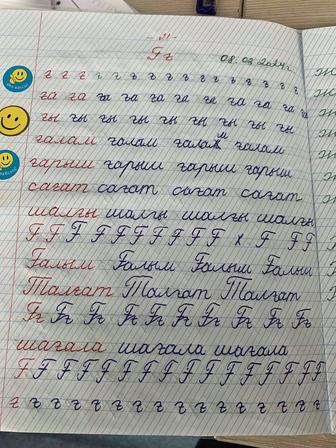 - 21 -
Ғғ 08. 02. 2024г
ғ ғ ғ ғ ғ ғ ғ ғ ғ ғ ғ ғ ғ ғ
ға ға ға ға ға ға ға ға ға ға
ғы ғы ғы ғы ғы ғы ғы ғы ғы
ғалам ғалам ғалам ғалам
ғарыш ғарыш ғарыш ғарыш
сағат сағат сағат сағат
шалғы шалғы шалғы шалғы
Ғ Ғ Ғ Ғ Ғ Ғ Ғ Ғ Ғ Ғ х Ғ Ғ Ғ
Ғалым Ғалым Ғалым Ғалым
Талғат Талғат Талғат
Ғғ Ғғ Ғғ Ғғ Ғғ Ғғ Ғғ Ғғ Ғғ Ғғ
шағала шағала шағала
Ғ Ғ Ғ Ғ Ғ Ғ Ғ Ғ Ғ Ғ Ғ Ғ Ғ Ғ Ғ Ғ Ғ
ғ ғ ғ ғ ғ ғ ғ ғ ғ ғ ғ ғ ғ ғ ғ ғ